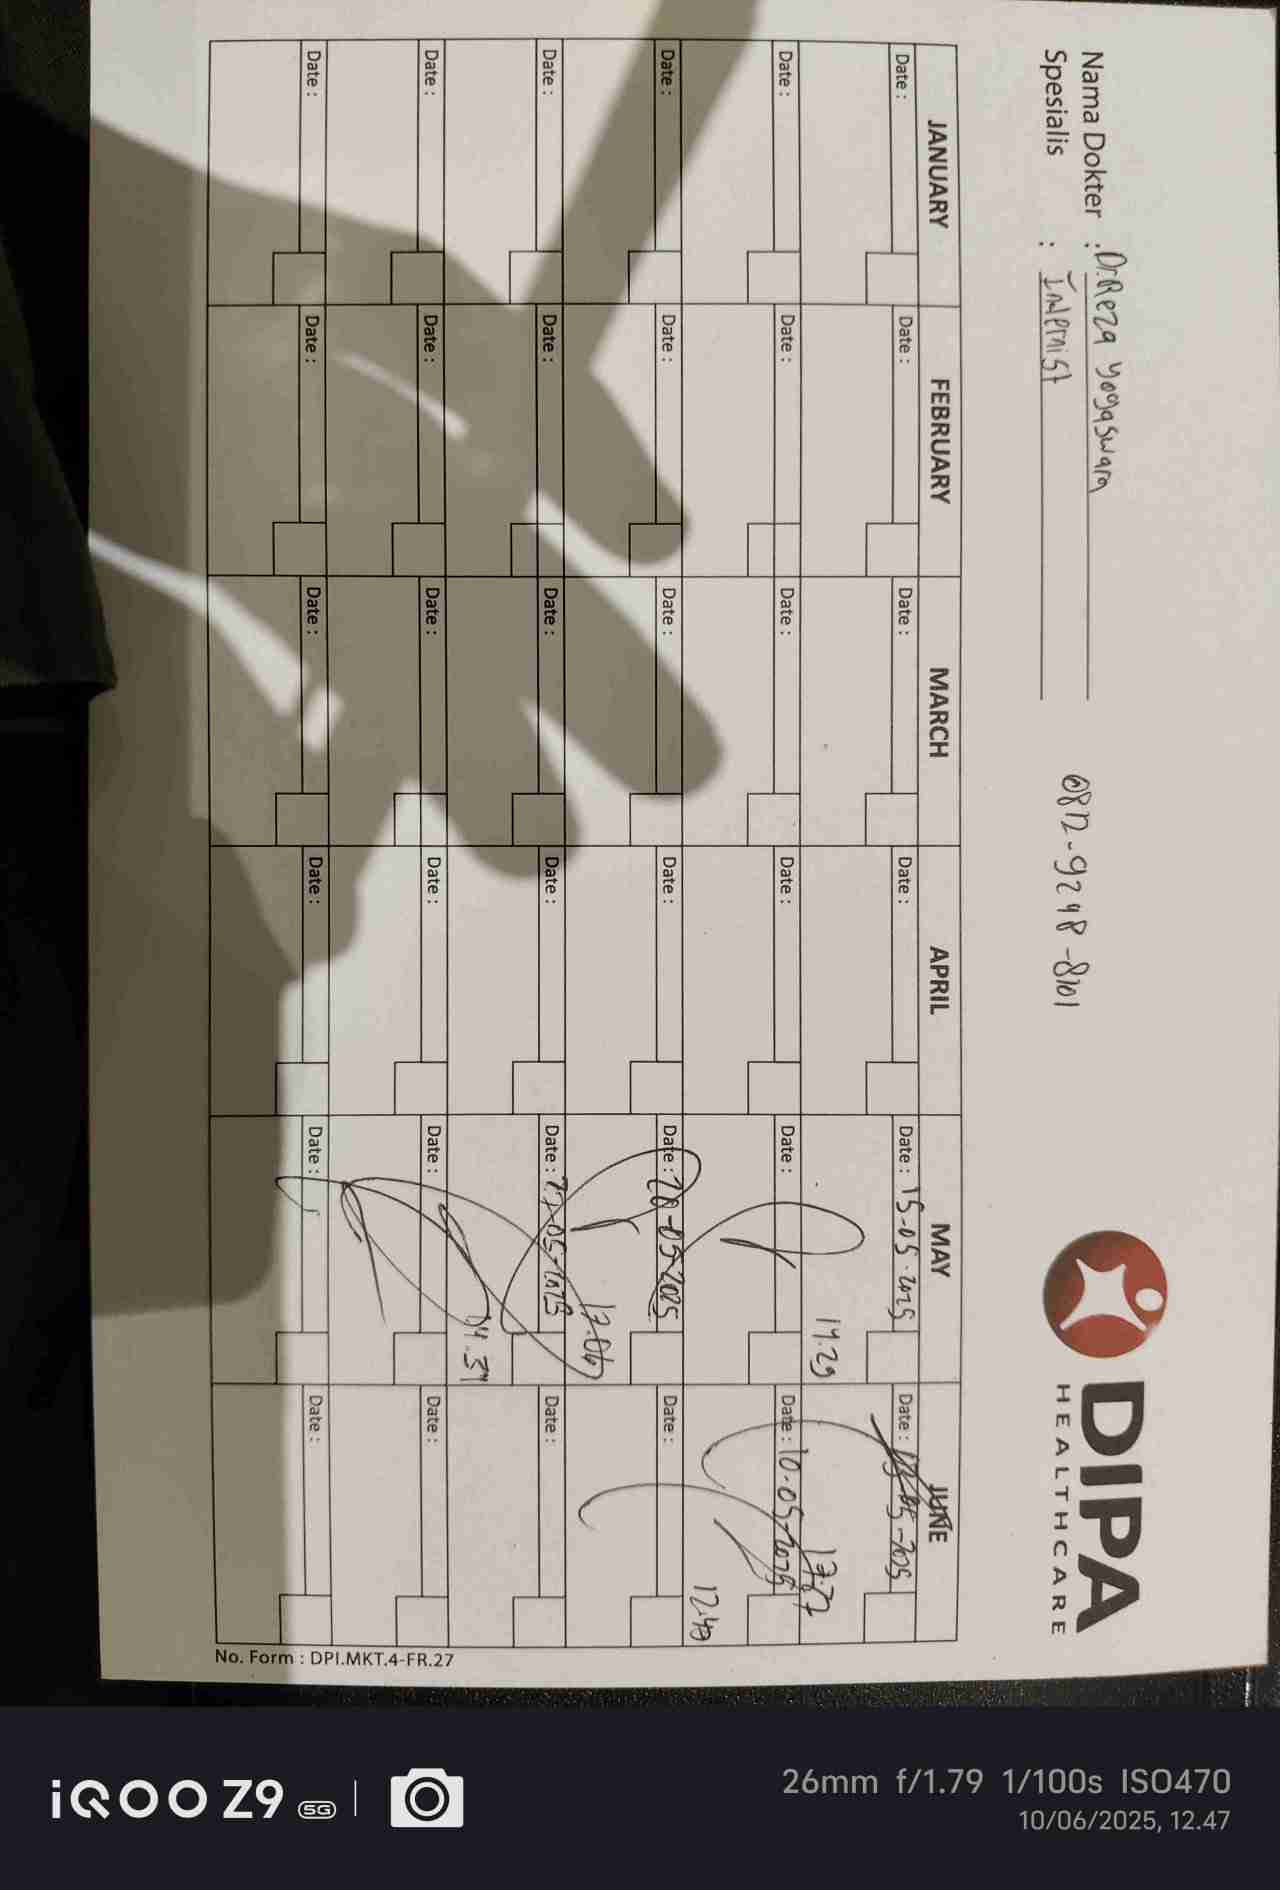 DIPA
HEALTHCARE
Nama Dokter : Dr. Reza Yogaswara
Spesialis : Internist
JANUARY FEBRUARY MARCH APRIL MAY JUNE
Date : Date : Date : Date : Date : 15-05-2025 Date :
14.29 17.27
Date : Date : Date : Date : Date : Date : 10-05-2025
12.47
Date : Date : Date : Date : Date : 20-05-2025 Date :
17.06
Date : Date : Date : Date : Date : Date :
Date : Date : Date : Date : Date : Date :
Date : Date : Date : Date : Date : Date :
No. Form : DPI.MKT.4-FR.27
iQOO Z9 5G
26mm f/1.79 1/100s ISO470
10/06/2025, 12.47